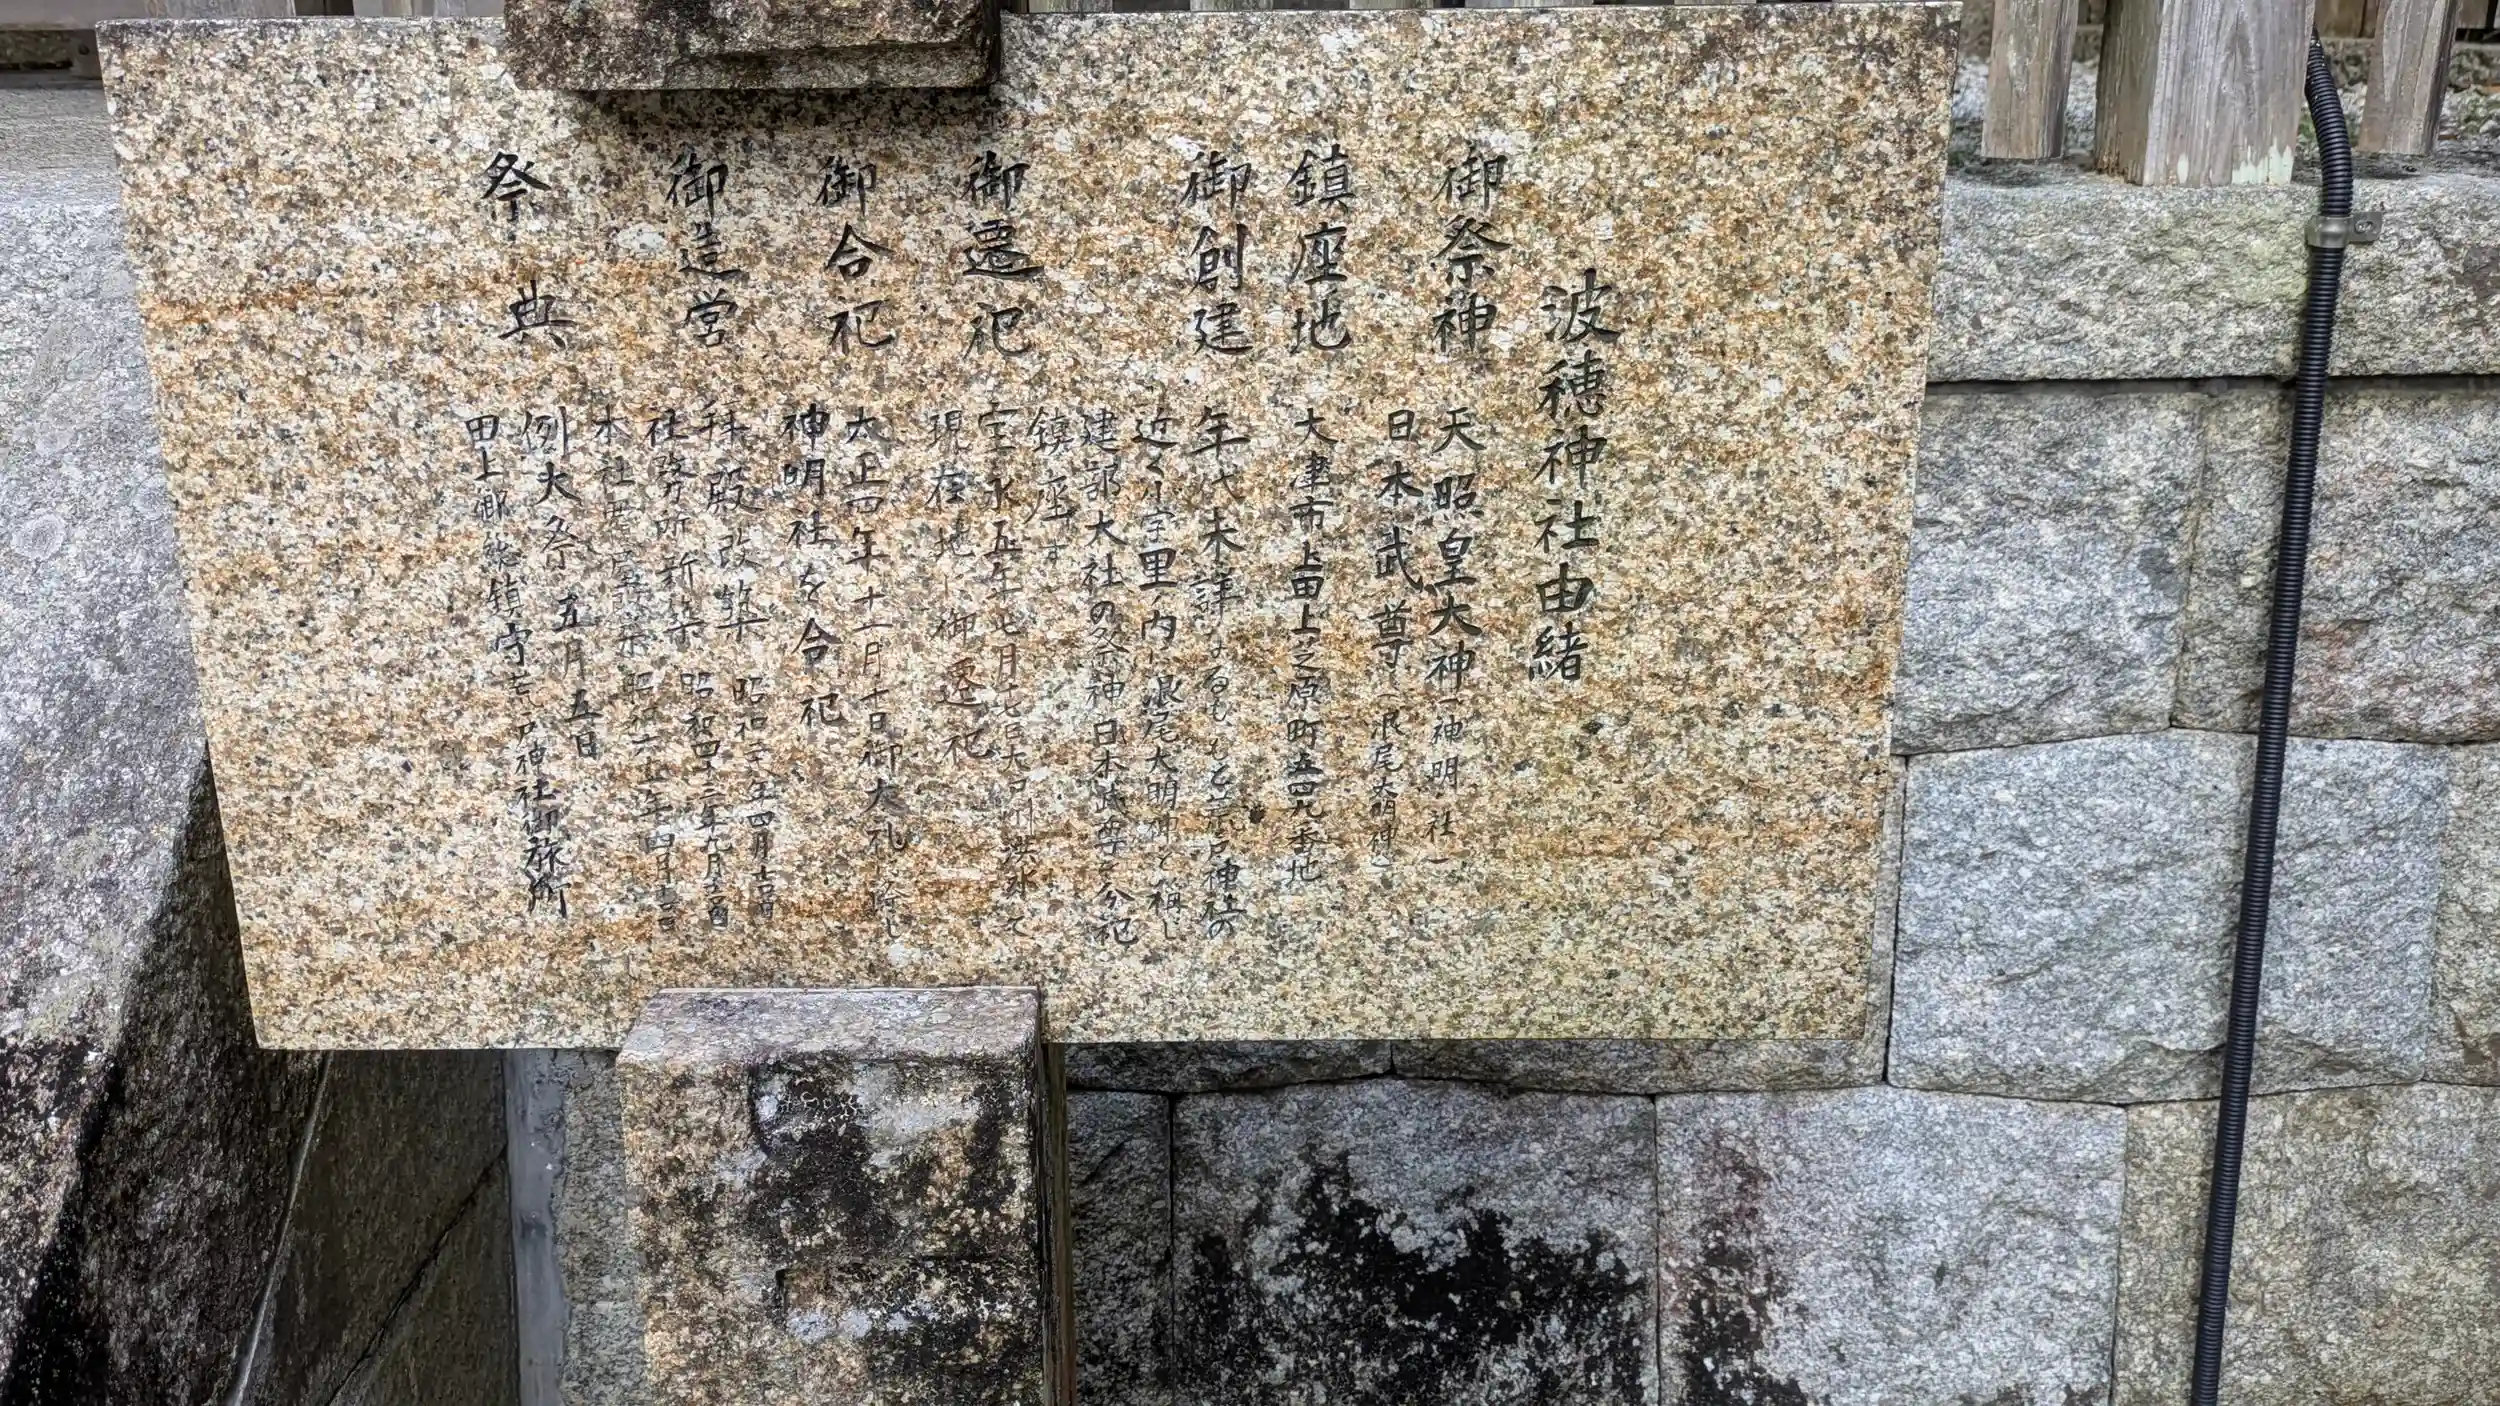 波穂神社由緒
御祭神 天照皇大神(神明社)
日本武尊(浪尾大明神)
鎮座地 大津市上田上之原町五四九番地
御創建 年代未詳なるももと荒戸神社の
近く小字里ノ内に浪尾大明神と称し
建部大社の祭神日本武尊を分祀
鎮座す
御遷祀 宝永五年七月 大戸川洪水て
現在地に御遷祀
御合祀 大正四年十一月十日御大礼に際し
神明社を合祀
御造営 拝殿改築 昭和 年四月 日
社務所新築 昭和四十二年九月 日
本社 昭和六十 年四月 日
祭典 例大祭 五月五日
田上郷総鎮守荒戸神社御旅所